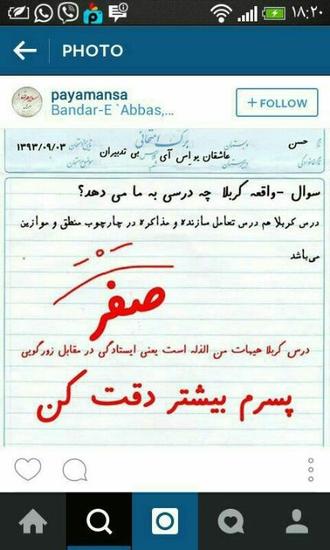 ۱۸:۲۰
PHOTO
payamansa
Bandar-E `Abbas,...
+ FOLLOW
برگ امتحانی
حسن
عاشقان یو اس آی
بی تدبیران
۱۳۹۳/۰۹/۰۳
سوال -واقعه کربلا چه درسی به ما می دهد؟
درس کربلا هم درس تعامل سازنده و مذاکره در چارچوب منطق و موازین
می‌باشد
صفر
درس کربلا هیهات من الذله است یعنی ایستادگی در مقابل زورگویی
پسرم بیشتر دقت کن